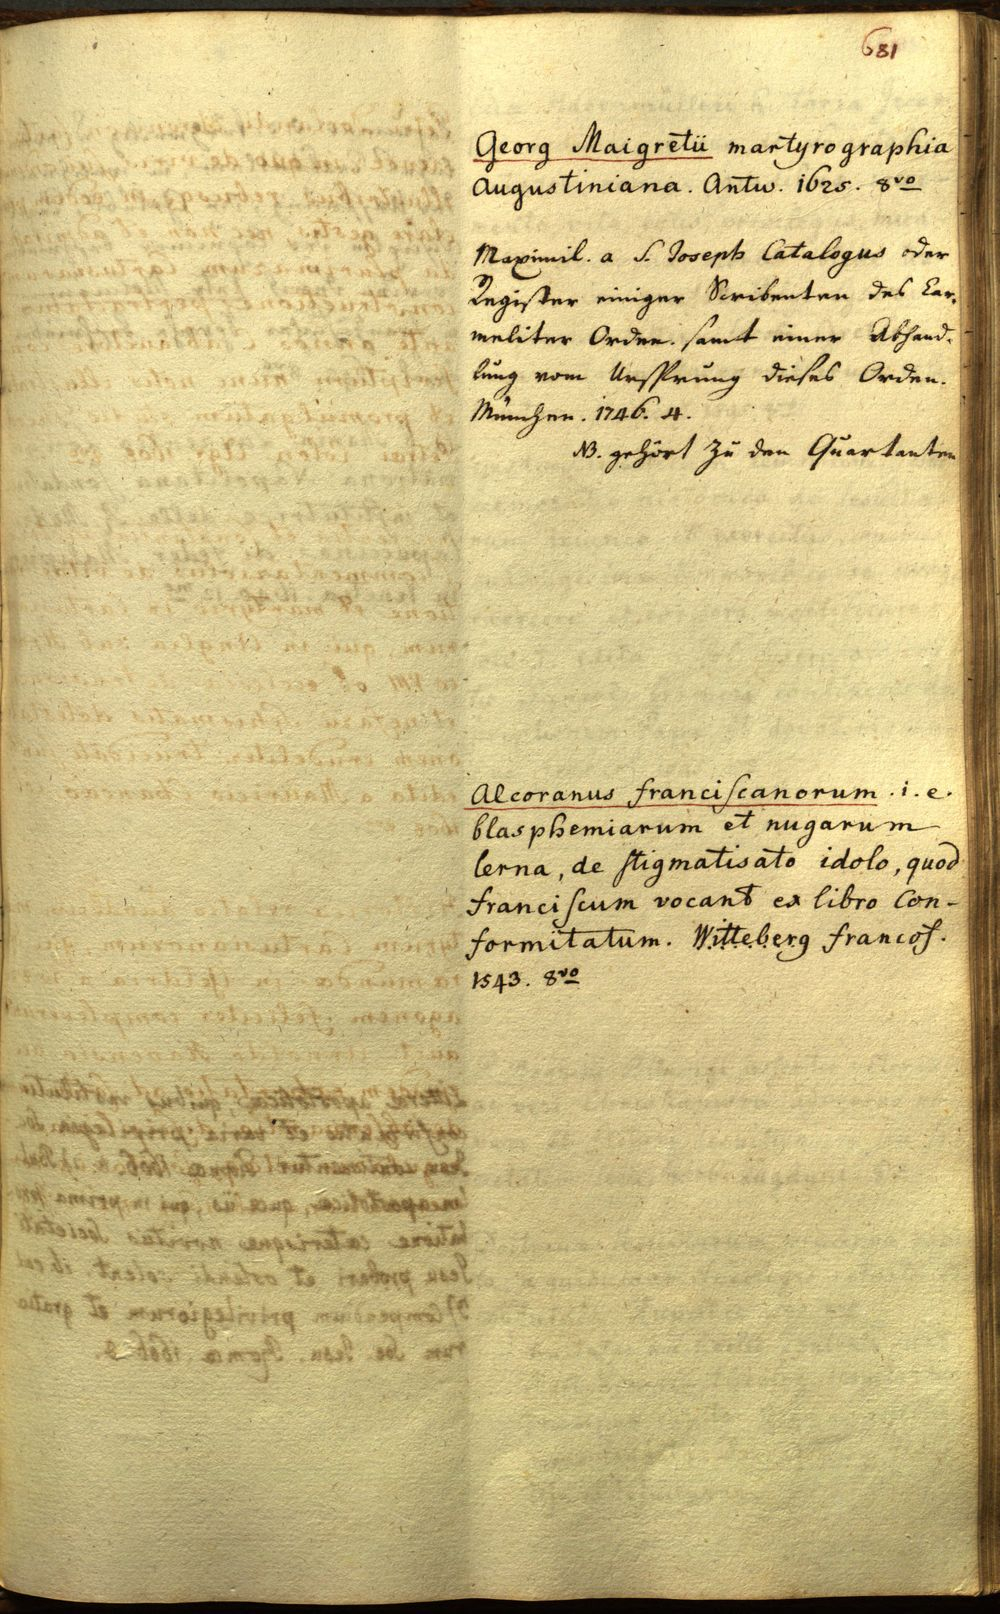 681
Georg Maigretii martyrographia
Augustiniana. Antw. 1625. 8vo
Maximil. a S. Joseph Catalogus oder
Register einiger Scribenten des Car-
meliter Orden. samt einer Abhand-
lung vom Ursprung dieses Orden.
München. 1746. 4.
NB. gehört zu den Quartanten
Alcoranus franciscanorum. i. e.
blasphemiarum et nugarum
lerna, de stigmatisato idolo, quod
franciscum vocant ex libro Con-
formitatum. Witteberg francof.
1543. 8vo